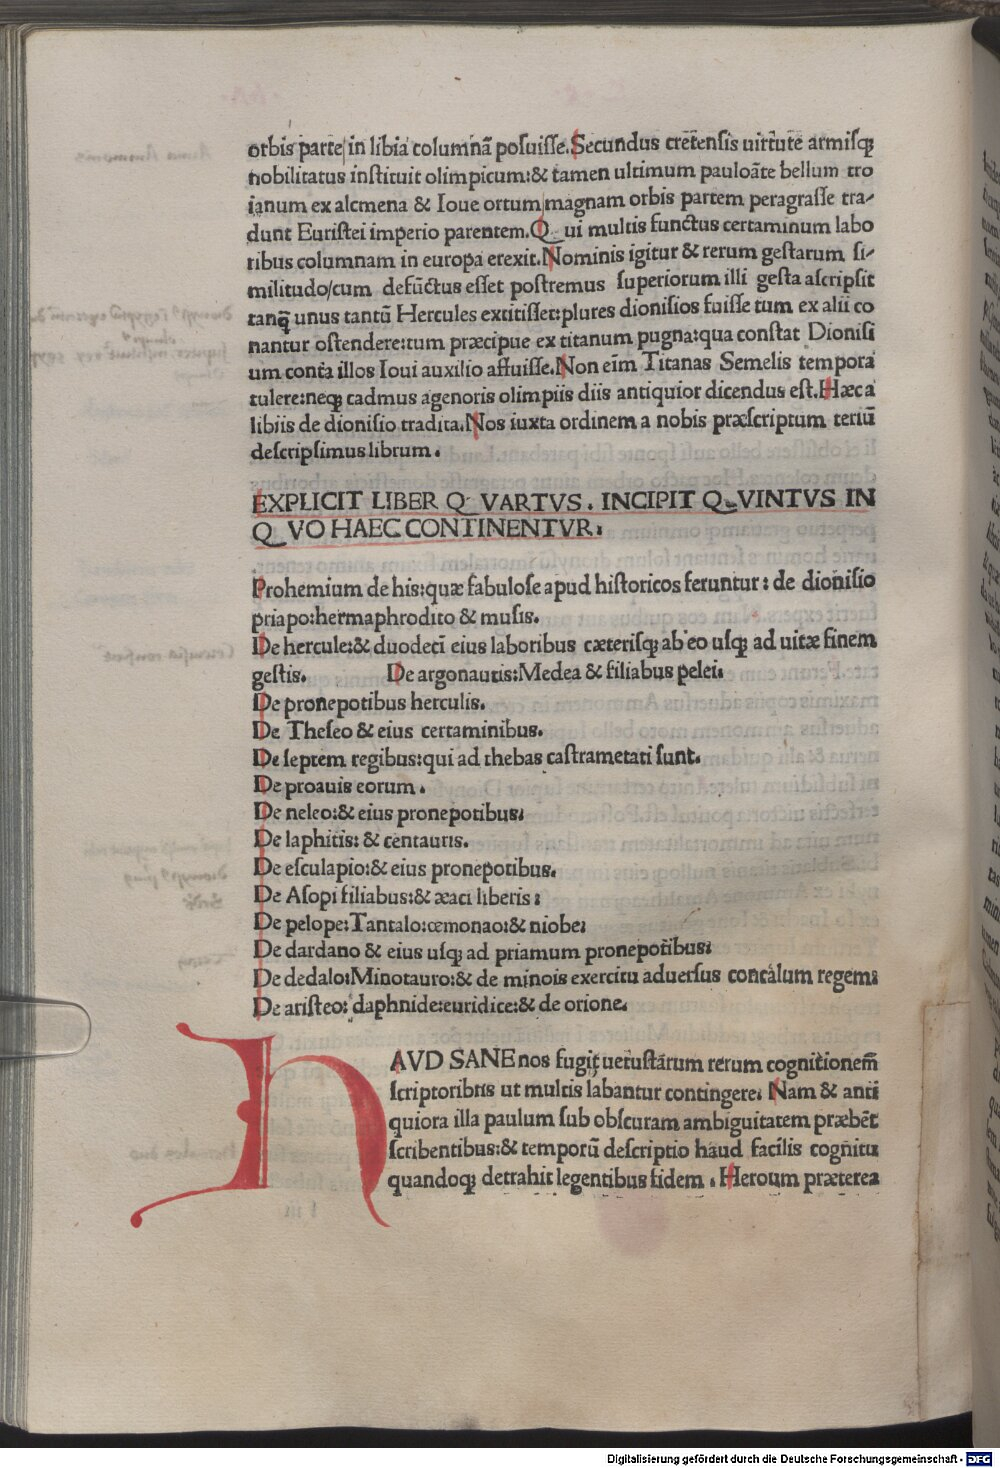 orbis parte/in libia columnā posuisse.Secundus cretensis uirtute armisq;
nobilitatus instituit olimpicum:& tamen ultimum pauloāte bellum tro
ianum ex alcmena & Ioue ortum magnam orbis partem peragrasse tra-
dunt Euristei imperio parentem.Q ui multis functus certaminum labo
ribus columnam in europa erexit.Nominis igitur & rerum gestarum si-
militudo/cum defūctus esset postremus superiorum illi gesta ascripsit
tanq̄ unus tantū Hercules extitisset:plures dionisios fuisse tum ex alii co
nantur ostendere:tum præcipue ex titanum pugna:qua constat Dionisi
um conta illos Ioui auxilio affuisse.Non eīm Titanas Semelis tempora
tulere:neq; cadmus agenoris olimpiis diis antiquior dicendus est.Hæc a
libiis de dionisio tradita.Nos iuxta ordinem a nobis præscriptum tertiū
descripsimus librum.
EXPLICIT LIBER Q VARTVS. INCIPIT Q VINTVS IN
Q VO HAEC CONTINENTVR:
Prohemium de his:quæ fabulose apud historicos feruntur: de dionisio
priapo:hermaphrodito & musis.
De hercule:& duodecī eius laboribus cæterisq; ab eo usq; ad uitæ finem
gestis. De argonautis:Medea & filiabus pelei.
De pronepotibus herculis.
De Theseo & eius certaminibus.
De septem regibus:qui ad thebas castrametati sunt.
De proauis eorum.
De neleo:& eius pronepotibus:
De laphitis: & centauris.
De esculapio:& eius pronepotibus.
De Asopi filiabus:& æaci liberis:
De pelope:Tantalo:œmonao:& niobe:
De dardano & eius usq; ad priamum pronepotibus:
De dedalo:Minotauro:& de minois exercitu aduersus concalum regem:
De aristeo: daphnide:euridice:& de orione.
HAVD SANE nos fugit uetustarum rerum cognitionem
scriptoribus ut multis labantur contingere: Nam & anti
quiora illa paulum sub obscuram ambiguitatem præbēt
scribentibus:& temporū descriptio haud facilis cognitu
quandoq; detrahit legentibus fidem. Heroum præterea
Digitalisierung gefördert durch die Deutsche Forschungsgemeinschaft - DFG